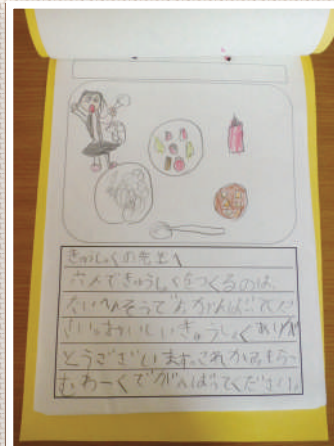 きゅうしょくの先生へ
六人できゅうしょくをつくるのは
たいへんそうですががんばってくだ
さい。おいしいきゅうしょくありが
とうございます。これからもちーっ
むわーくでがんばってください。